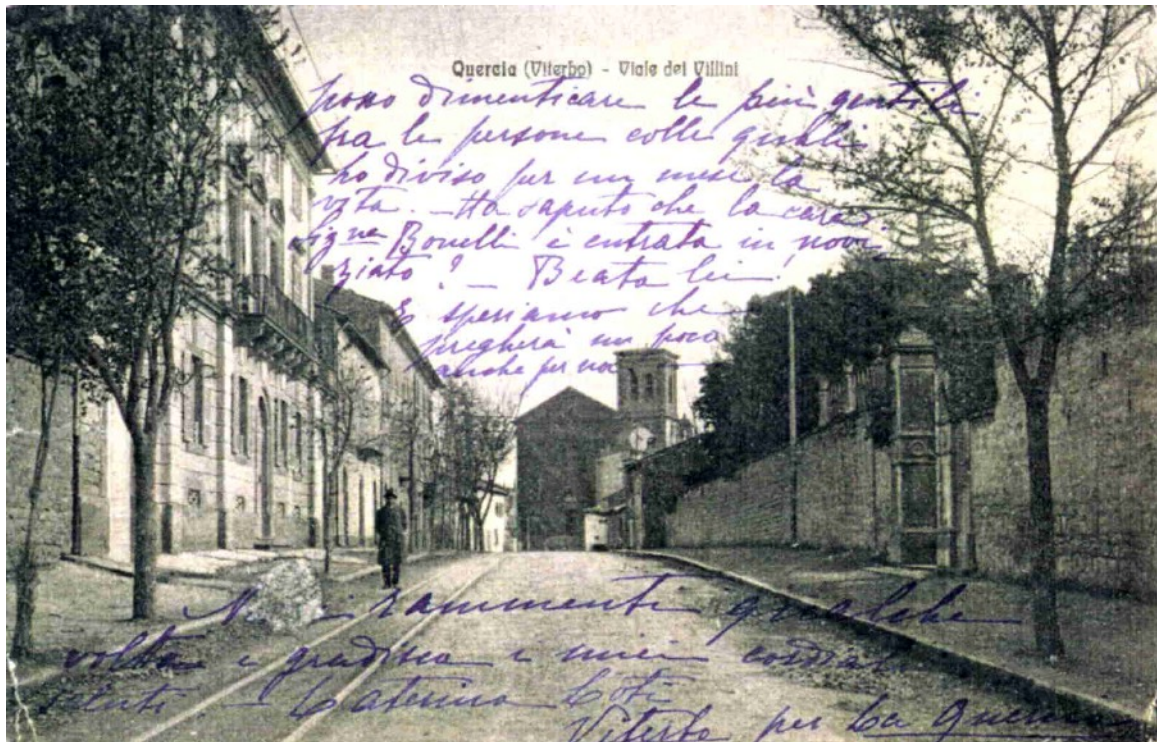 Quercia (Viterbo) - Viale dei Villini
posso dimenticare le più gentili
fra le persone colle quali
ho diviso per un mese la
vita. - Ha saputo che la cara
Signa Bonelli è entrata in novi
ziato? - Beata lei!
E speriamo che
pregherà un poco
anche per noi
Mi rammenti qualche
volta e gradisca i miei cordiali
saluti - Caterina
Viterbo per La Quercia